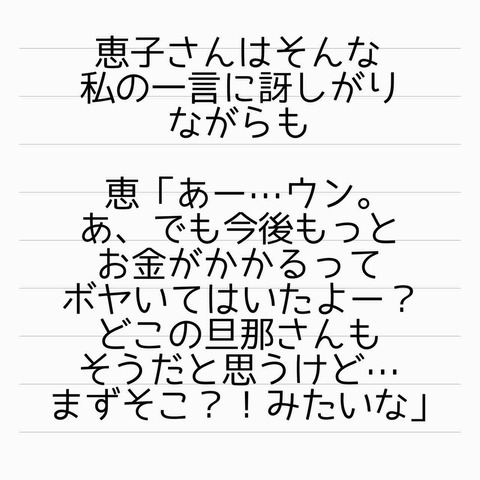 恵子さんはそんな
私の一言に訝しがり
ながらも
恵「あー…ウン。
あ、でも今後もっと
お金がかかるって
ボヤいてはいたよー？
どこの旦那さんも
そうだと思うけど…
まずそこ？！みたいな」